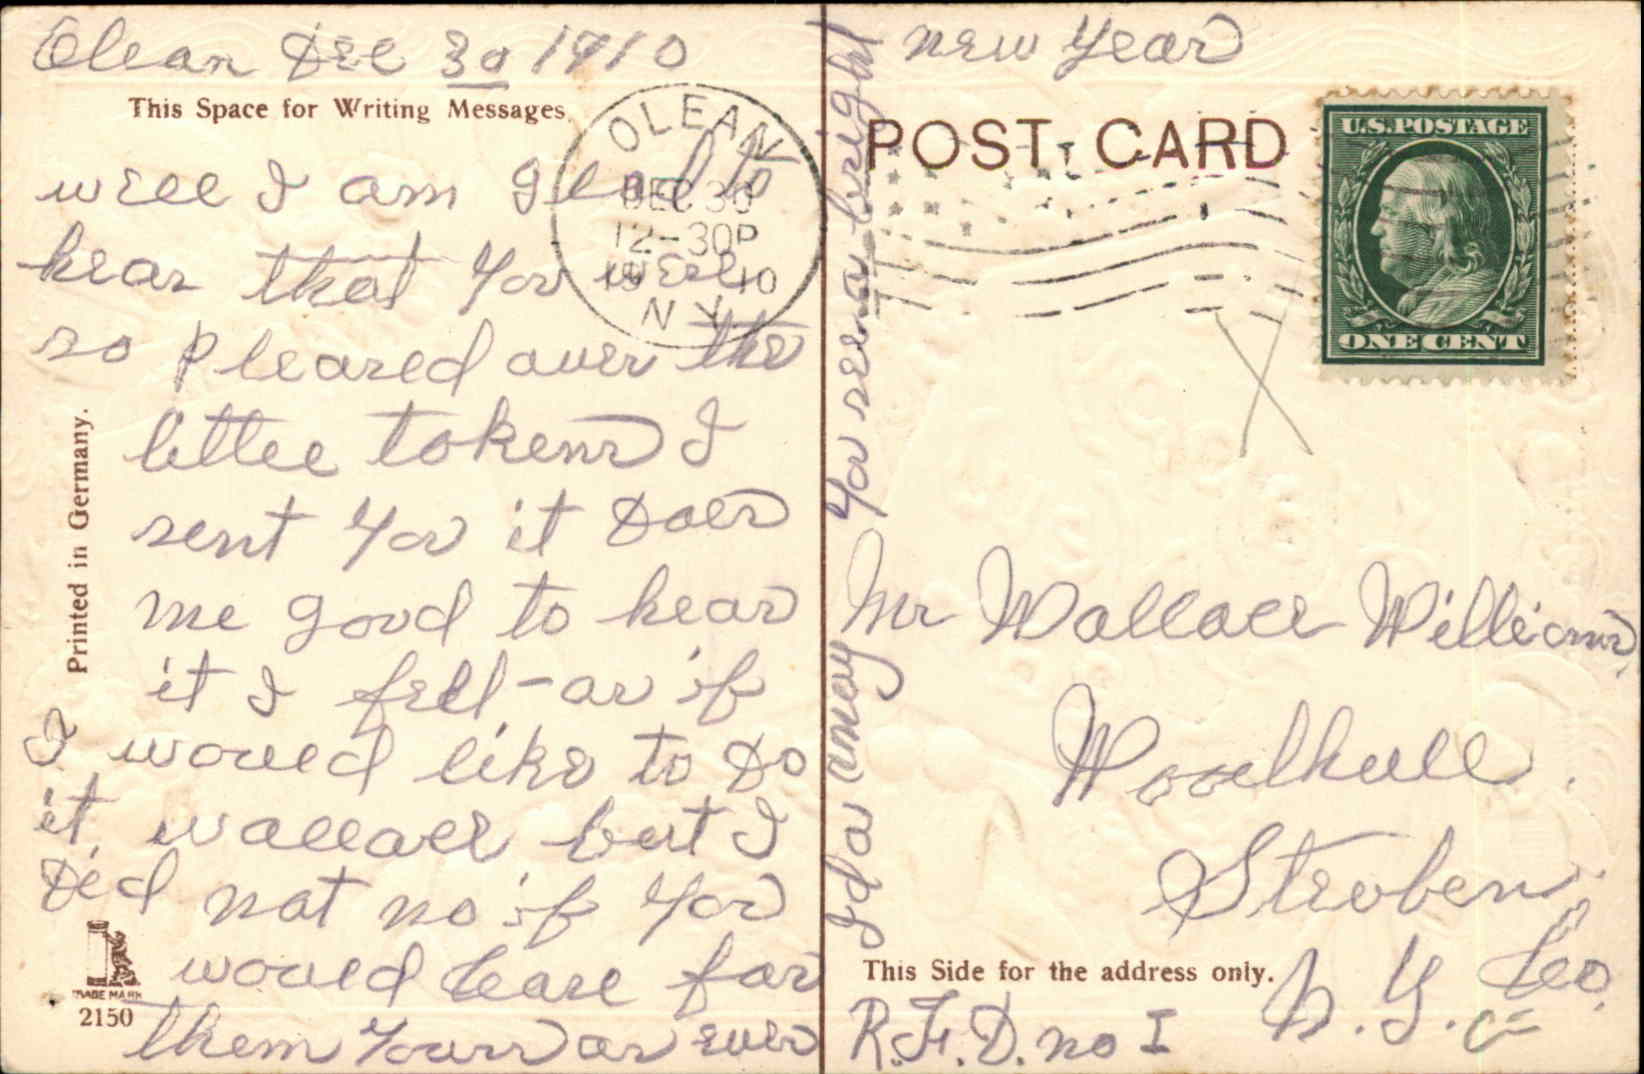 Olean Dec 30 1910
This Space for Writing Messages.
OLEAN
DEC 30
12-30P
1910
N.Y.
well I am glad to
hear that you wer
so pleased over the
littee tokens I
sent you it Does
me good to hear
it I feel-as if
I would like to Do
it wallace but I
Did not no if you
would Care for
them yours as ever
Ida amay
you see a bright
new year
Printed in Germany.
TRADE MARK
2150
POST CARD
U.S. POSTAGE
ONE CENT
X
Mr Wallace Williams
Woodhull
Steuben
Co.
N.Y.
This Side for the address only.
R.F.D. no I